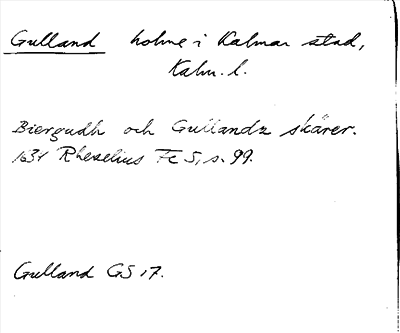 Gulland holme i Kalmar stad,
Kalm. l.
Biergudh och Gullandz skärer.
1634 Rhezelius Fc 5, s. 99.
Gulland GS 17.